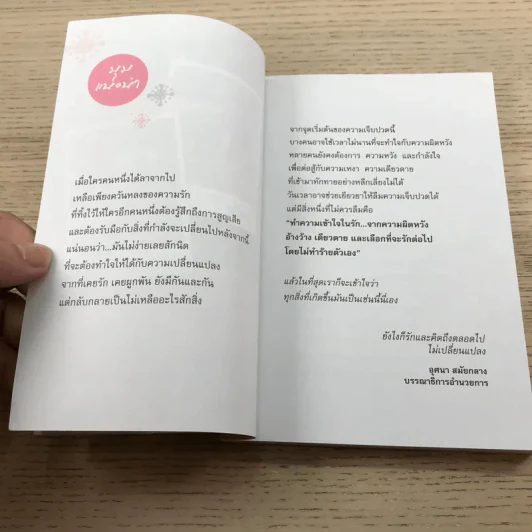 มุม
แนะนำ
เมื่อใครคนหนึ่งได้ลาจากไป
เหลือเพียงควันหลงของความรัก
ที่ทิ้งไว้ให้ใครอีกคนหนึ่งต้องรู้สึกถึงการสูญเสีย
และต้องรับมือกับสิ่งที่กำลังจะเปลี่ยนไปหลังจากนี้
แน่นอนว่า...มันไม่ง่ายเลยสักนิด
ที่จะต้องทำใจให้ได้กับความเปลี่ยนแปลง
จากที่เคยรัก เคยผูกพัน ยังมีกันและกัน
แต่กลับกลายเป็นไม่เหลืออะไรสักสิ่ง
จากจุดเริ่มต้นของความเจ็บปวดนี้
บางคนอาจใช้เวลาไม่นานที่จะทำใจกับความผิดหวัง
หลายคนยังคงต้องการ ความหวัง และกำลังใจ
เพื่อต่อสู้กับความเหงา ความเดียวดาย
ที่เข้ามาทักทายอย่างหลีกเลี่ยงไม่ได้
วันเวลาอาจช่วยเยียวยาให้ลืมความเจ็บปวดได้
แต่มีสิ่งหนึ่งที่ไม่ควรลืมคือ
"ทำความเข้าใจในรัก...จากความผิดหวัง
อ้างว้าง เดียวดาย และเลือกที่จะรักต่อไป
โดยไม่ทำร้ายตัวเอง"
แล้วในที่สุดเราก็จะเข้าใจว่า
ทุกสิ่งที่เกิดขึ้นมันเป็นเช่นนี้นี่เอง
ยังไงก็รักและคิดถึงตลอดไป
ไม่เปลี่ยนแปลง
อุศนา สมัยกลาง
บรรณาธิการอำนวยการ